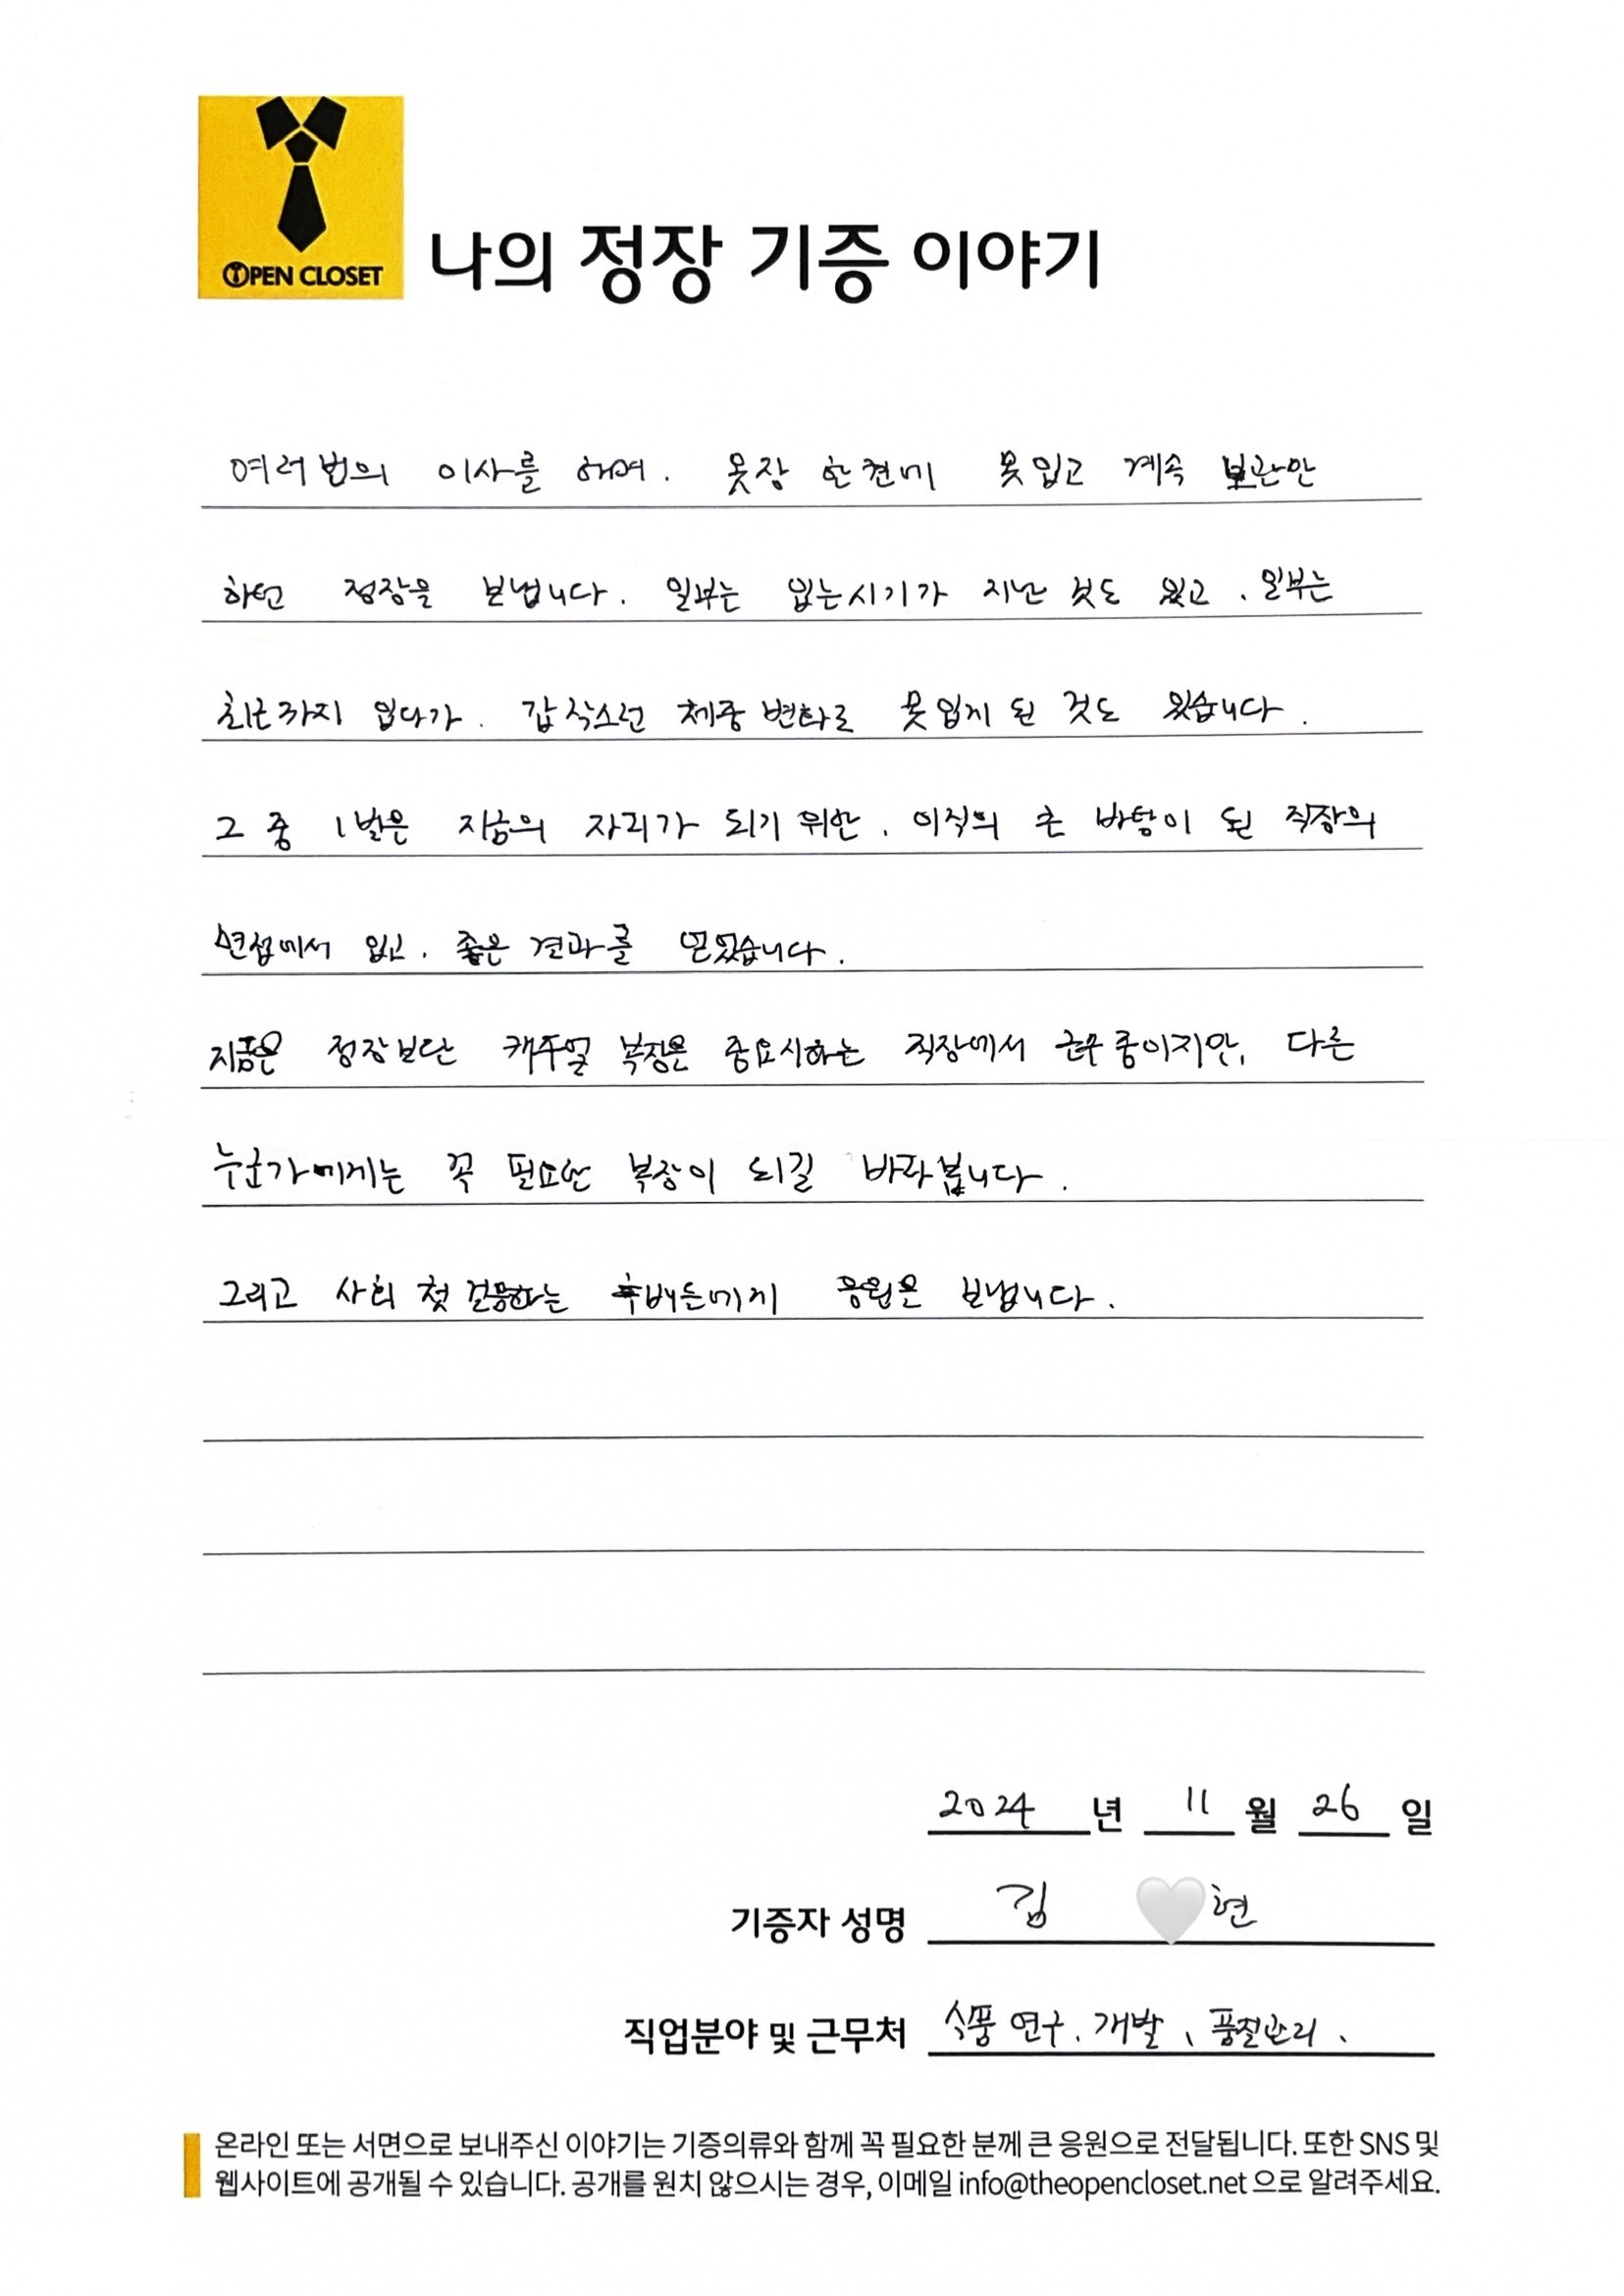 OPEN CLOSET
나의 정장 기증 이야기
여러번의 이사를 하며. 옷장 한켠에 못입고 계속 보관만
하던 정장을 보냅니다. 일부는 입는시기가 지난 것도 있고, 일부는
최근까지 입다가. 갑작스런 체중변화로 못입게 된 것도 있습니다.
그 중 1벌은 지금의 자리가 되기 위한, 이직의 큰 바탕이 된 직장의
면접에서 입고, 좋은 결과를 얻었습니다.
지금은 정장보단 캐주얼 복장을 중요시하는 직장에서 근무중이지만, 다른
누군가에게는 꼭 필요한 복장이 되길 바라봅니다.
그리고 사회 첫 걸음하는 후배들에게 응원을 보냅니다.
2024 년 11 월 26 일
기증자 성명 김 현
직업분야 및 근무처 식품 연구. 개발, 품질관리.
온라인 또는 서면으로 보내주신 이야기는 기증의류와 함께 꼭 필요한 분께 큰 응원으로 전달됩니다. 또한 SNS 및
웹사이트에 공개될 수 있습니다. 공개를 원치 않으시는 경우, 이메일 info@theopencloset.net 으로 알려주세요.